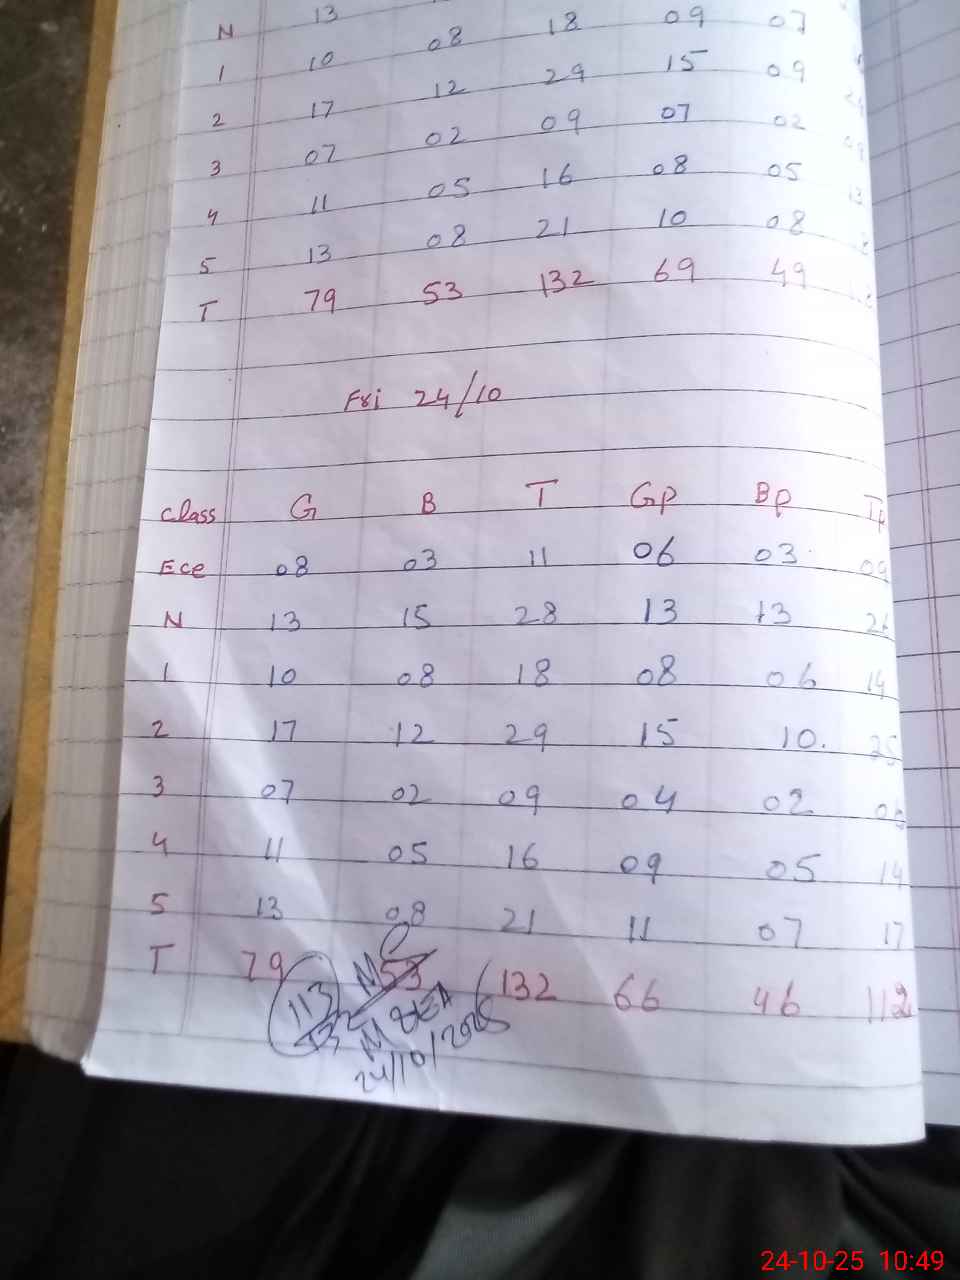 N 13
1 10 08 18 09 07
2 17 12 29 15 09
3 07 02 09 07 02
4 11 05 16 08 05
5 13 08 21 10 08
T 79 53 132 69 49
Fri 24/10
Class G B T Gp Bp Tp
Ece 08 03 11 06 03 09
N 13 15 28 13 13 26
1 10 08 18 08 06 14
2 17 12 29 15 10. 25
3 07 02 09 04 02
4 11 05 16 09 05 14
5 13 08 21 11 07 17
T 79 53 132 66 46 112
113
132
M
MEA
24/10/2025
24-10-25 10:49